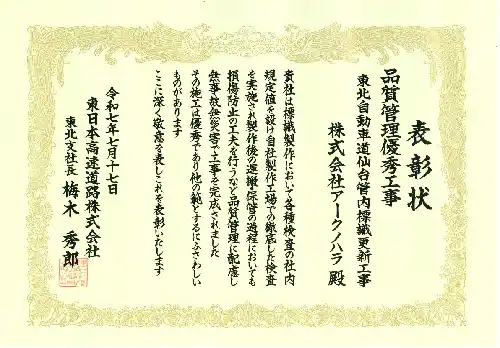 表彰状
品質管理優秀工事
東北自動車道仙台管内標識更新工事
株式会社アークノハラ 殿
貴社は標識製作において各種検査の社内
規定値を設け自社製作工場での徹底した検査
を実施され製作後の運搬・保管の過程においても
損傷防止の工夫を行うなど品質管理に配慮し
無事故無災害で工事を完成されました
その施工は優秀であり他の範とするにふさわしい
ものがあります
ここに深く敬意を表しこれを表彰いたします
令和七年七月十七日
東日本高速道路株式会社
東北支社長 梅木 秀郎